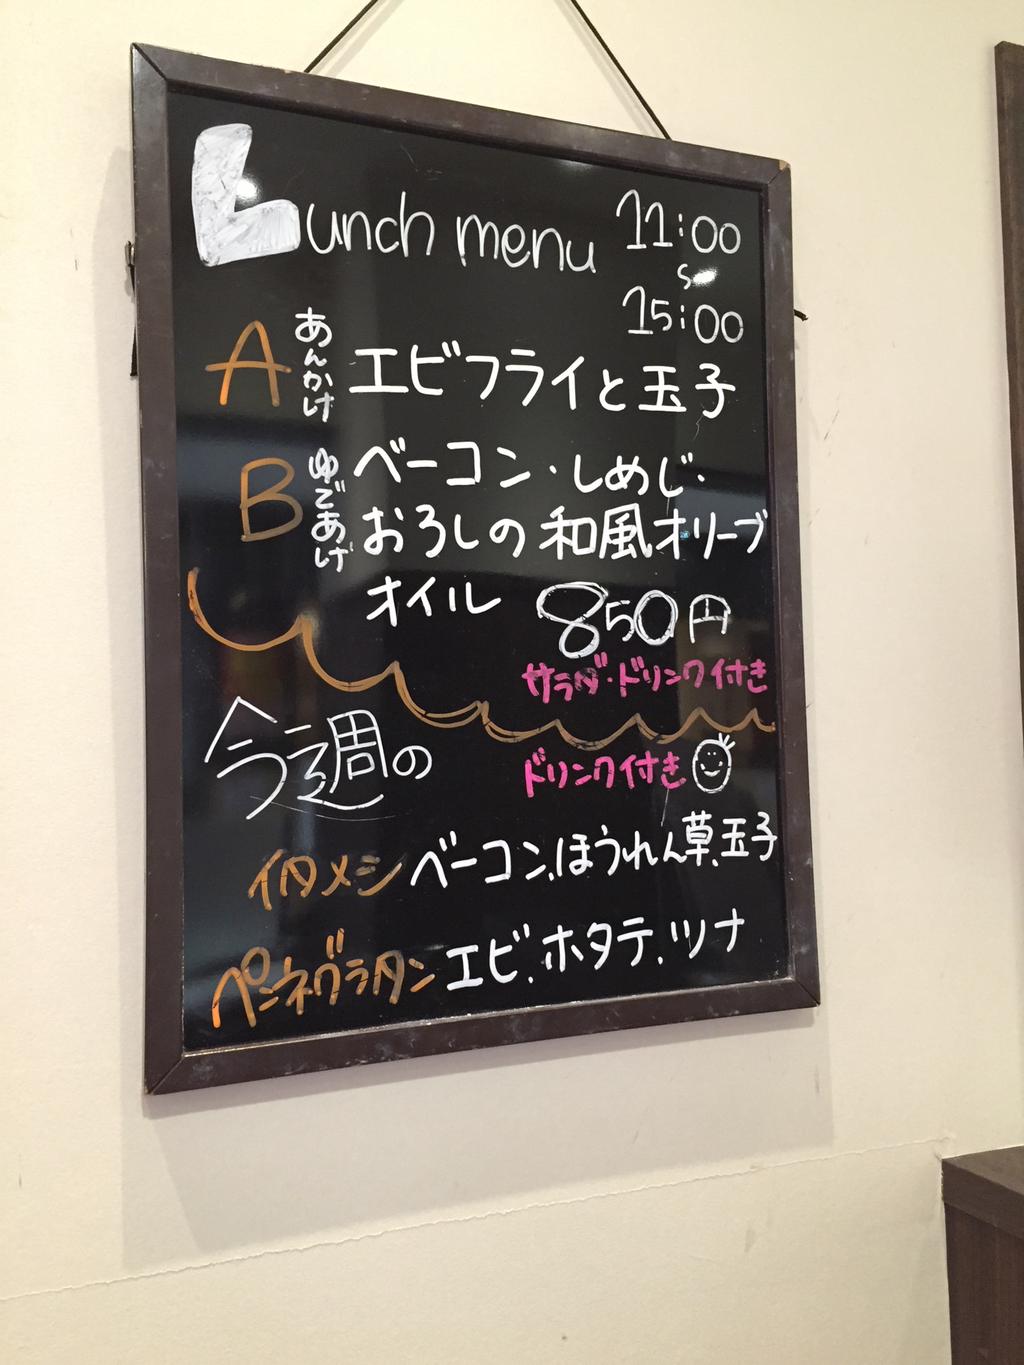 Lunch menu 11:00
〜
15:00
A あんかけ エビフライと玉子
B ゆであげ ベーコン・しめじ・
おろしの和風オリーブ
オイル 850円
サラダ・ドリンク付き
今週の ドリンク付き
イタメシ ベーコン、ほうれん草、玉子
ペンネグラタン エビ、ホタテ、ツナ